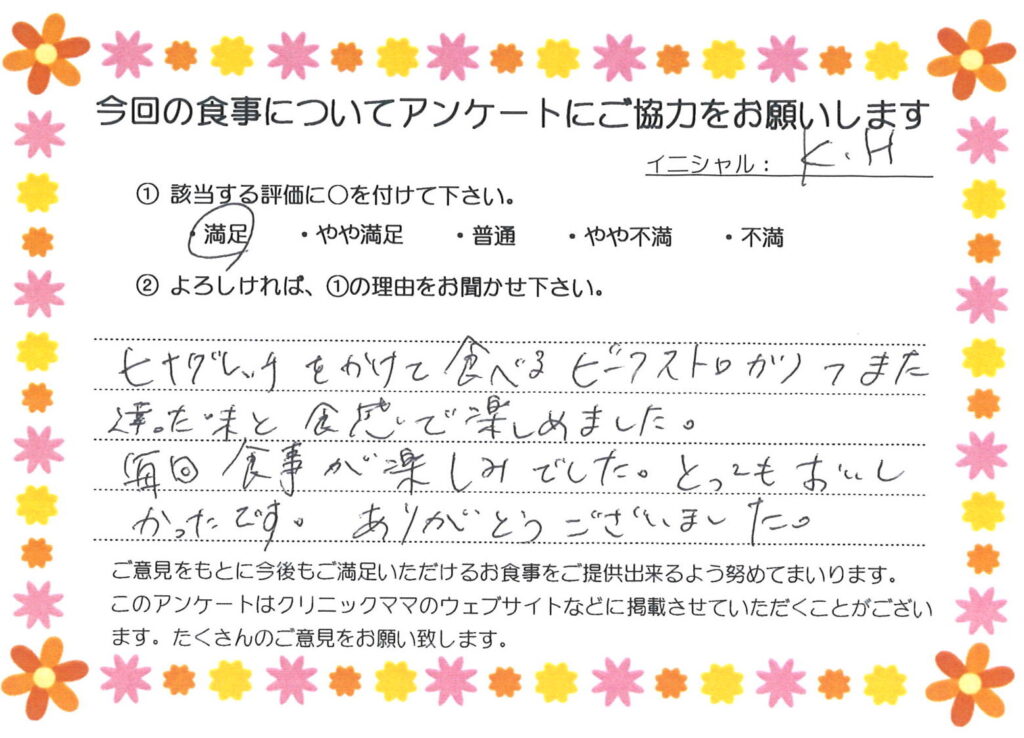 今回の食事についてアンケートにご協力をお願いします
イニシャル： K.H
① 該当する評価に○を付けて下さい。
・満足 ・やや満足 ・普通 ・やや不満 ・不満
② よろしければ、①の理由をお聞かせ下さい。
をかけて食べるビーフストロガノフまた
違った味と食感で楽しめました。
毎回食事が楽しみでした。とってもおいし
かったです。ありがとうございました。
ご意見をもとに今後もご満足いただけるお食事をご提供出来るよう努めてまいります。
このアンケートはクリニックママのウェブサイトなどに掲載させていただくことがござい
ます。たくさんのご意見をお願い致します。